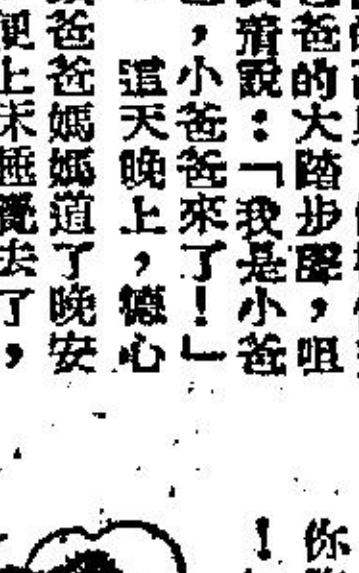 爸的大踏步聲，咀
說：「我是小爸
，小爸爸來了！」
這天晚上，德心
爸爸媽媽道了晚安
便上床睡覺去了，
你
！